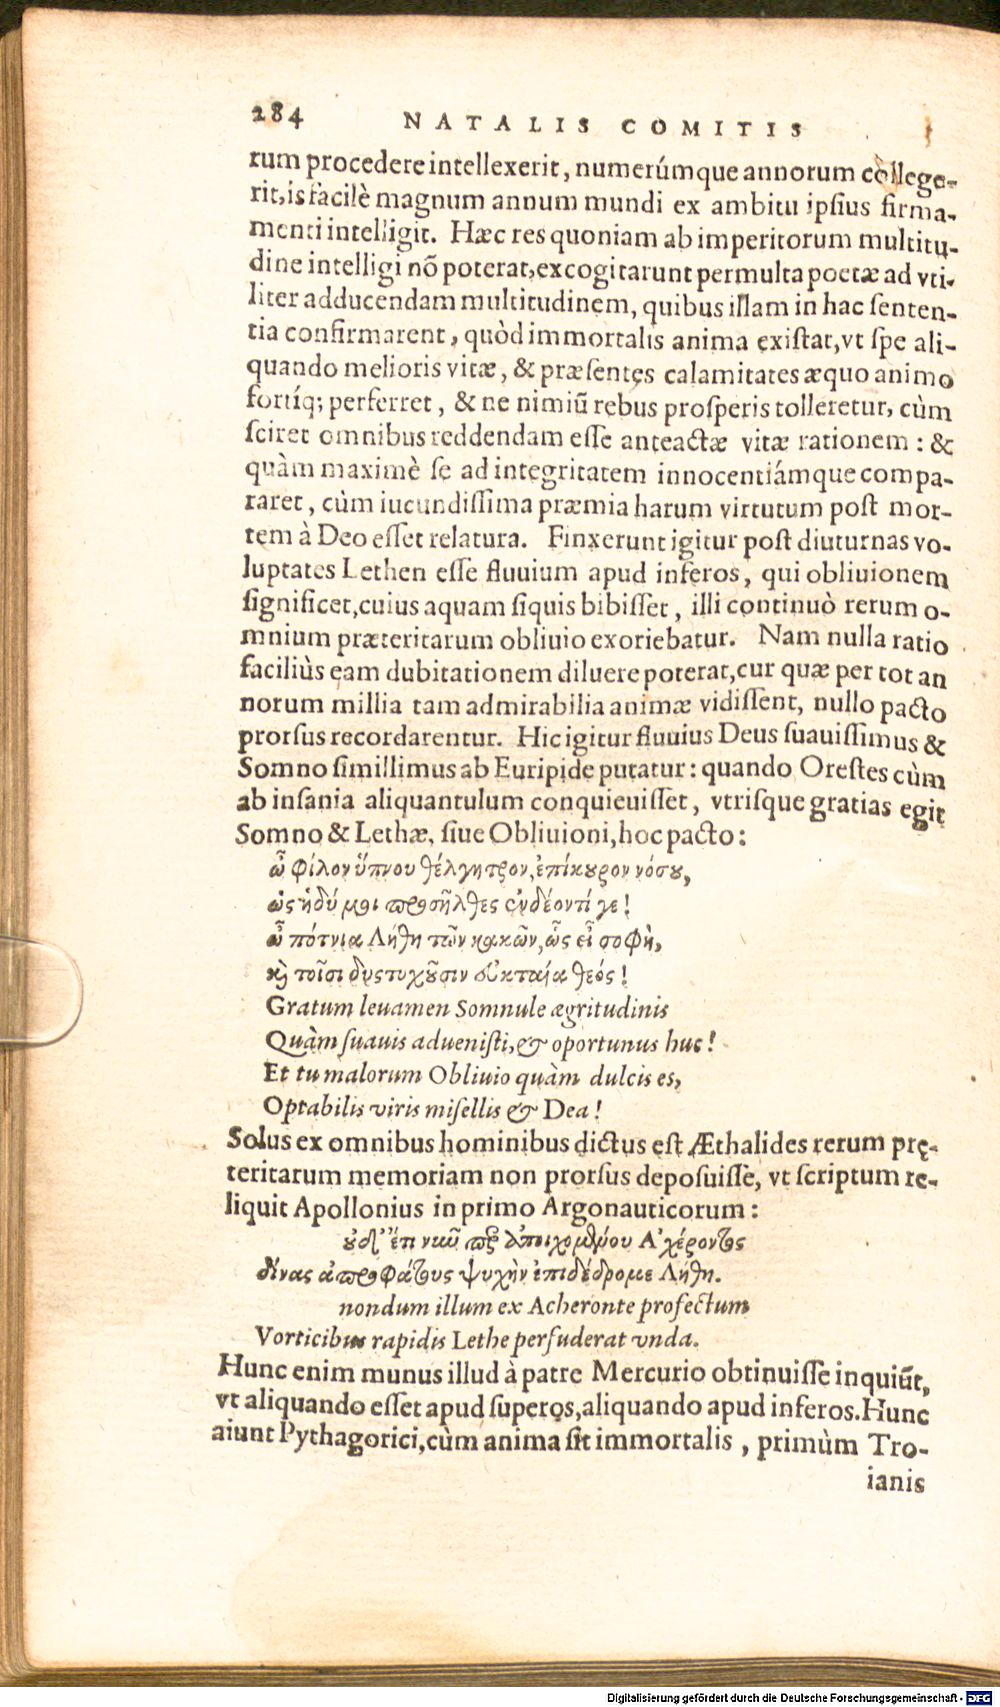 284 NATALIS COMITIS
rum procedere intellexerit, numerúmque annorum college-
rit, is facilè magnum annum mundi ex ambitu ipsius firma-
menti intelligit. Hæc res quoniam ab imperitorum multitu-
dine intelligi nõ poterat, excogitarunt permulta poetæ ad vti-
liter adducendam multitudinem, quibus illam in hac senten-
tia confirmarent, quòd immortalis anima existat, vt spe ali-
quando melioris vitæ, & præsentes calamitates æquo animo
fortíq; perferret, & ne nimiũ rebus prosperis tolleretur, cùm
sciret omnibus reddendam esse anteactæ vitæ rationem: &
quàm maximè se ad integritatem innocentiámque compa-
raret, cùm iucundissima præmia harum virtutum post mor-
tem à Deo esset relatura. Finxerunt igitur post diuturnas vo-
luptates Lethen esse fluuium apud inferos, qui obliuionem
significet, cuius aquam siquis bibisset, illi continuò rerum o-
mnium præteritarum obliuio exoriebatur. Nam nulla ratio
faciliùs eam dubitationem diluere poterat, cur quæ per tot an
norum millia tam admirabilia animæ vidissent, nullo pacto
prorsus recordarentur. Hic igitur fluuius Deus suauissimus &
Somno simillimus ab Euripide putatur: quando Orestes cùm
ab insania aliquantulum conquieuisset, vtrisque gratias egit
Somno & Lethæ, siue Obliuioni, hoc pacto:
ὦ φίλον ὕπνου θέλγητρον, ἐπίκουρον νόσου,
ὡς ἡδύ μοι προσῆλθες ἐνδέοντί γε!
ὦ πότνια Λήθη τῶν κακῶν, ὡς εἶ σοφὴ,
καὶ τοῖσι δυστυχοῦσιν εὐκταία θεός!
Gratum leuamen Somnule ægritudinis
Quàm suauis aduenisti, & oportunus huc!
Et tu malorum Obliuio quàm dulcis es,
Optabilis viris misellis & Dea!
Solus ex omnibus hominibus dictus est Æthalides rerum prę-
teritarum memoriam non prorsus deposuisse, vt scriptum re-
liquit Apollonius in primo Argonauticorum:
οὐδ' ἔτι νῦν περ ἀποιχομένου Ἀχέροντος
δίνας ἀπροφάτους ψυχὴν ἐπιδέδρομε Λήθη.
nondum illum ex Acheronte profectum
Vorticibus rapidis Lethe perfuderat vnda.
Hunc enim munus illud à patre Mercurio obtinuisse inquiũt,
vt aliquando esset apud superos, aliquando apud inferos. Hunc
aiunt Pythagorici, cùm anima sit immortalis, primùm Tro-
ianis
Digitalisierung gefördert durch die Deutsche Forschungsgemeinschaft - DFG